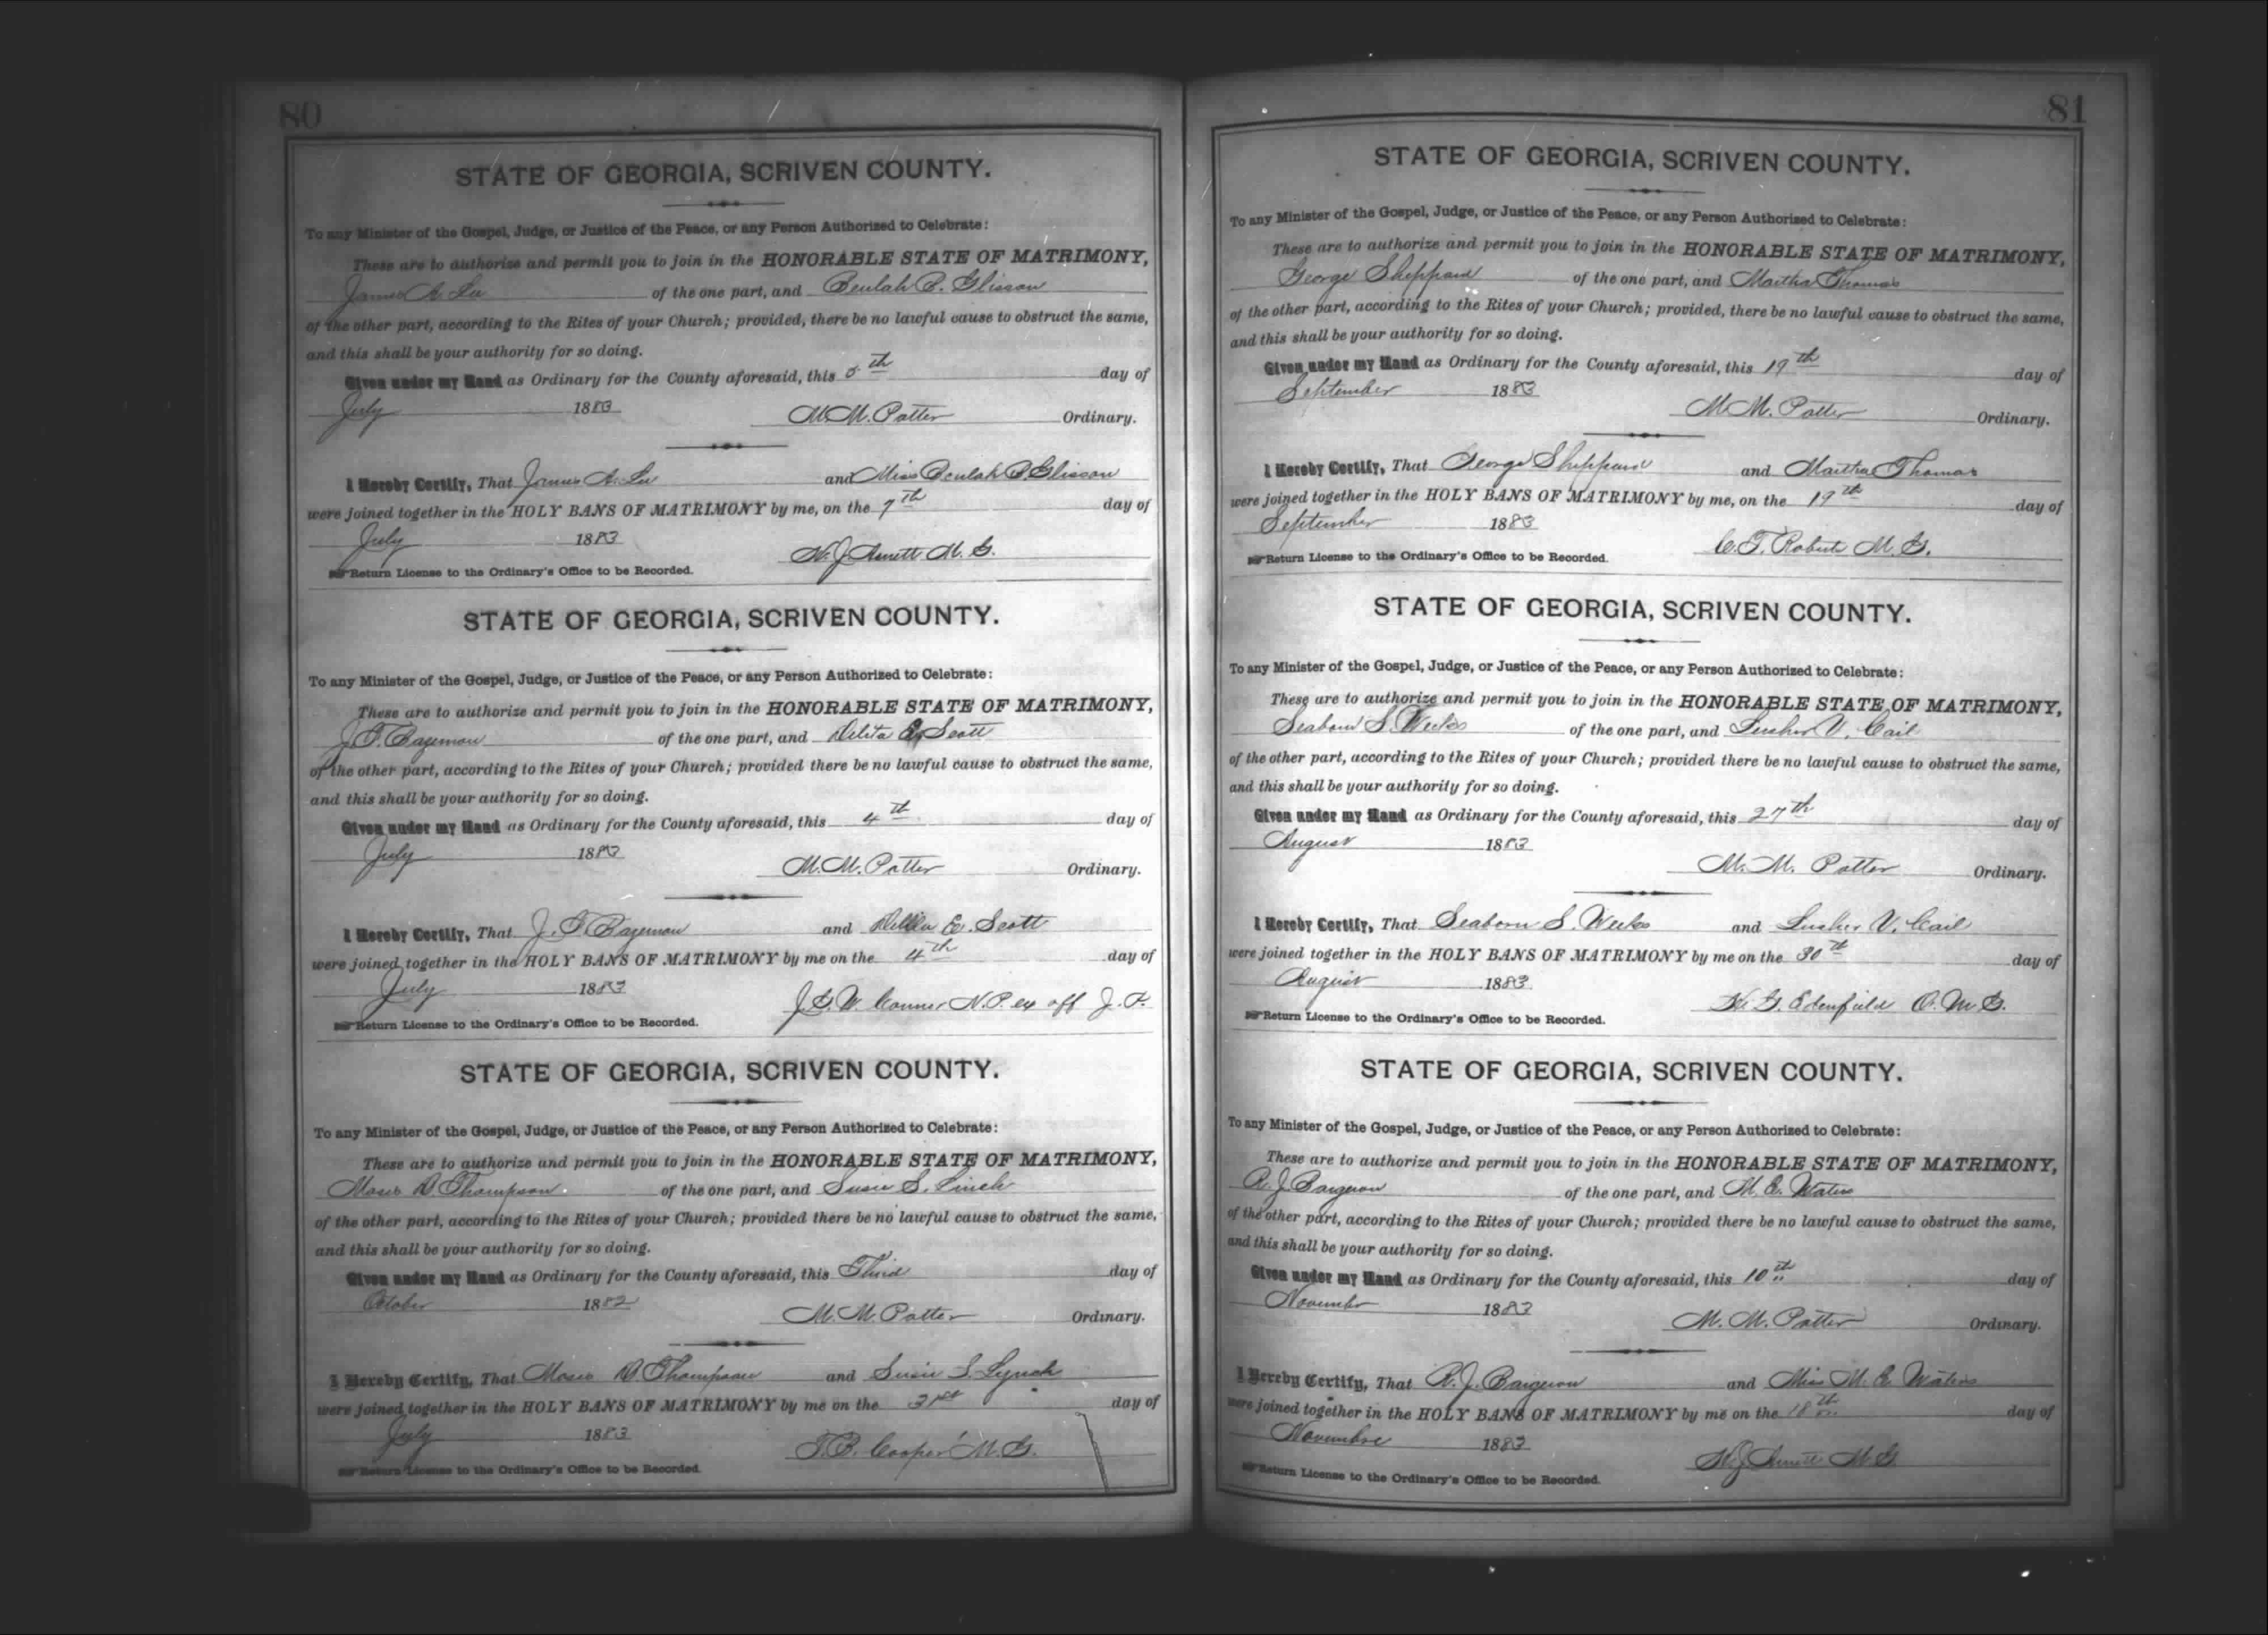 80
STATE OF GEORGIA, SCRIVEN COUNTY.
To any Minister of the Gospel, Judge, or Justice of the Peace, or any Person Authorized to Celebrate:
These are to authorize and permit you to join in the HONORABLE STATE OF MATRIMONY,
James A. Lee of the one part, and Beulah B. Glisson
of the other part, according to the Rites of your Church; provided, there be no lawful cause to obstruct the same,
and this shall be your authority for so doing.
Given under my Hand as Ordinary for the County aforesaid, this 5th day of
July 1883 M. M. Potter Ordinary.
I Hereby Certify, That James A. Lee and Miss Beulah B. Glisson
were joined together in the HOLY BANS OF MATRIMONY by me, on the 7th day of
July 1883 M. G.
Return License to the Ordinary's Office to be Recorded.
STATE OF GEORGIA, SCRIVEN COUNTY.
To any Minister of the Gospel, Judge, or Justice of the Peace, or any Person Authorized to Celebrate:
These are to authorize and permit you to join in the HONORABLE STATE OF MATRIMONY,
of the one part, and Scott
of the other part, according to the Rites of your Church; provided there be no lawful cause to obstruct the same,
and this shall be your authority for so doing.
Given under my Hand as Ordinary for the County aforesaid, this 4th day of
July 1883 M. M. Potter Ordinary.
I Hereby Certify, That and E. Scott
were joined together in the HOLY BANS OF MATRIMONY by me on the 4th day of
July 1883 J. G. W. Conner N. P. ex off J. P.
Return License to the Ordinary's Office to be Recorded.
STATE OF GEORGIA, SCRIVEN COUNTY.
To any Minister of the Gospel, Judge, or Justice of the Peace, or any Person Authorized to Celebrate:
These are to authorize and permit you to join in the HONORABLE STATE OF MATRIMONY,
Thompson. of the one part, and Susie S.
of the other part, according to the Rites of your Church; provided there be no lawful cause to obstruct the same,
and this shall be your authority for so doing.
Given under my Hand as Ordinary for the County aforesaid, this Third day of
October 1882 M. M. Potter Ordinary.
I Hereby Certify, That Thompson and Susie S. Lynch
were joined together in the HOLY BANS OF MATRIMONY by me on the day of
July 1883 T. B. Cooper M. G.
Return License to the Ordinary's Office to be Recorded.
81
STATE OF GEORGIA, SCRIVEN COUNTY.
To any Minister of the Gospel, Judge, or Justice of the Peace, or any Person Authorized to Celebrate:
These are to authorize and permit you to join in the HONORABLE STATE OF MATRIMONY,
George Sheppard of the one part, and Martha Thomas
of the other part, according to the Rites of your Church; provided, there be no lawful cause to obstruct the same,
and this shall be your authority for so doing.
Given under my Hand as Ordinary for the County aforesaid, this 19th day of
September 1883 M. M. Potter Ordinary.
I Hereby Certify, That George Sheppard and Martha Thomas
were joined together in the HOLY BANS OF MATRIMONY by me, on the 19th day of
September 1883 C. T. Roberts M. G.
Return License to the Ordinary's Office to be Recorded.
STATE OF GEORGIA, SCRIVEN COUNTY.
To any Minister of the Gospel, Judge, or Justice of the Peace, or any Person Authorized to Celebrate:
These are to authorize and permit you to join in the HONORABLE STATE OF MATRIMONY,
Seaborn S. Weeks of the one part, and V. Cail
of the other part, according to the Rites of your Church; provided there be no lawful cause to obstruct the same,
and this shall be your authority for so doing.
Given under my Hand as Ordinary for the County aforesaid, this 27th day of
August 1883 M. M. Potter Ordinary.
I Hereby Certify, That Seaborn S. Weeks and V. Cail
were joined together in the HOLY BANS OF MATRIMONY by me on the 30th day of
August 1883 Edenfield O. M. G.
Return License to the Ordinary's Office to be Recorded.
STATE OF GEORGIA, SCRIVEN COUNTY.
To any Minister of the Gospel, Judge, or Justice of the Peace, or any Person Authorized to Celebrate:
These are to authorize and permit you to join in the HONORABLE STATE OF MATRIMONY,
R. J. Bargeron of the one part, and M. E. Waters
of the other part, according to the Rites of your Church; provided there be no lawful cause to obstruct the same,
and this shall be your authority for so doing.
Given under my Hand as Ordinary for the County aforesaid, this 10th day of
November 1883 M. M. Potter Ordinary.
I Hereby Certify, That R. J. Bargeron and Miss M. E. Waters
were joined together in the HOLY BANS OF MATRIMONY by me on the 18th day of
November 1883 M. G.
Return License to the Ordinary's Office to be Recorded.